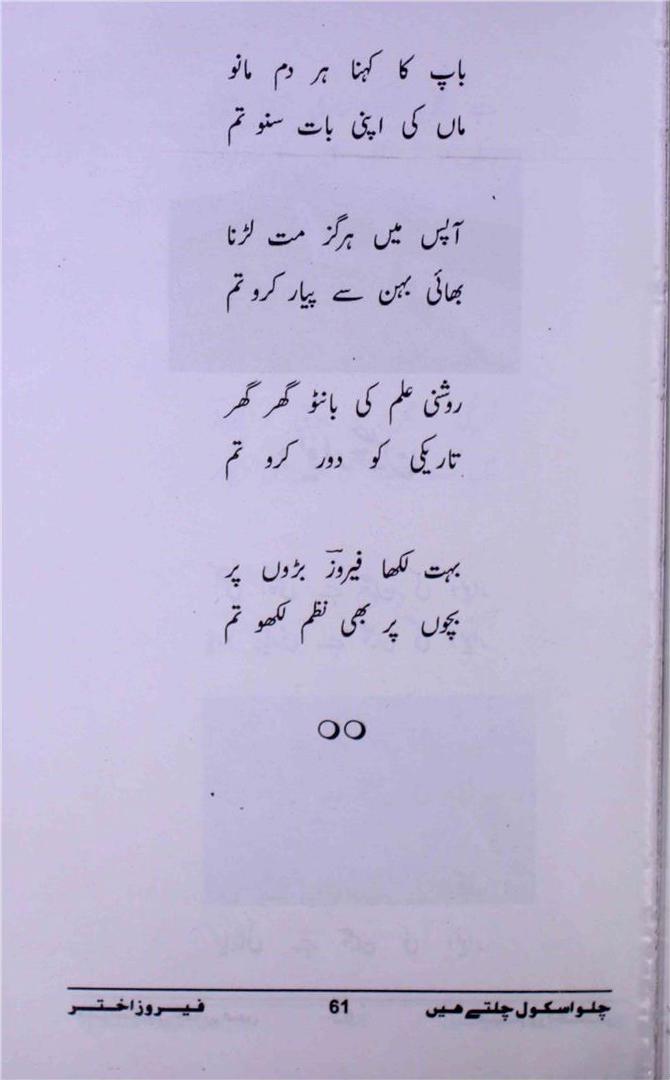 باپ کا کہنا ہر دم مانو
ماں کی اپنی بات سنو تم
آپس میں ہرگز مت لڑنا
بھائی بہن سے پیار کرو تم
روشنی علم کی بانٹو گھر گھر
تاریکی کو دور کرو تم
بہت لکھا فیروزؔ بڑوں پر
بچوں پر بھی نظم لکھو تم
○○
چلو اسکول چلتے ھیں 61 فیروز اختر